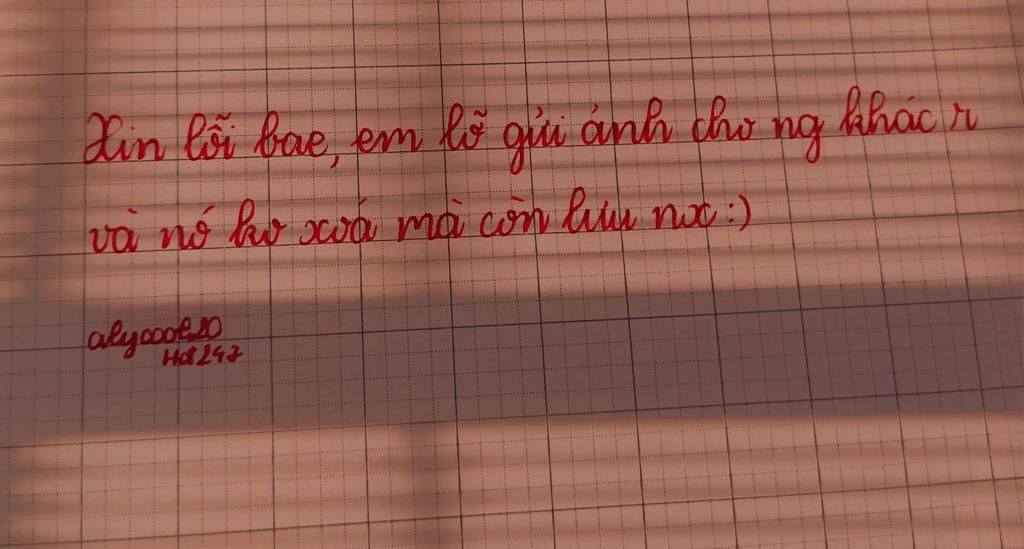 Xin lỗi bae, em lỡ gửi ảnh cho ng khác r
và nó ko xoá mà còn lưu nx :)
alyoool20
Hd247